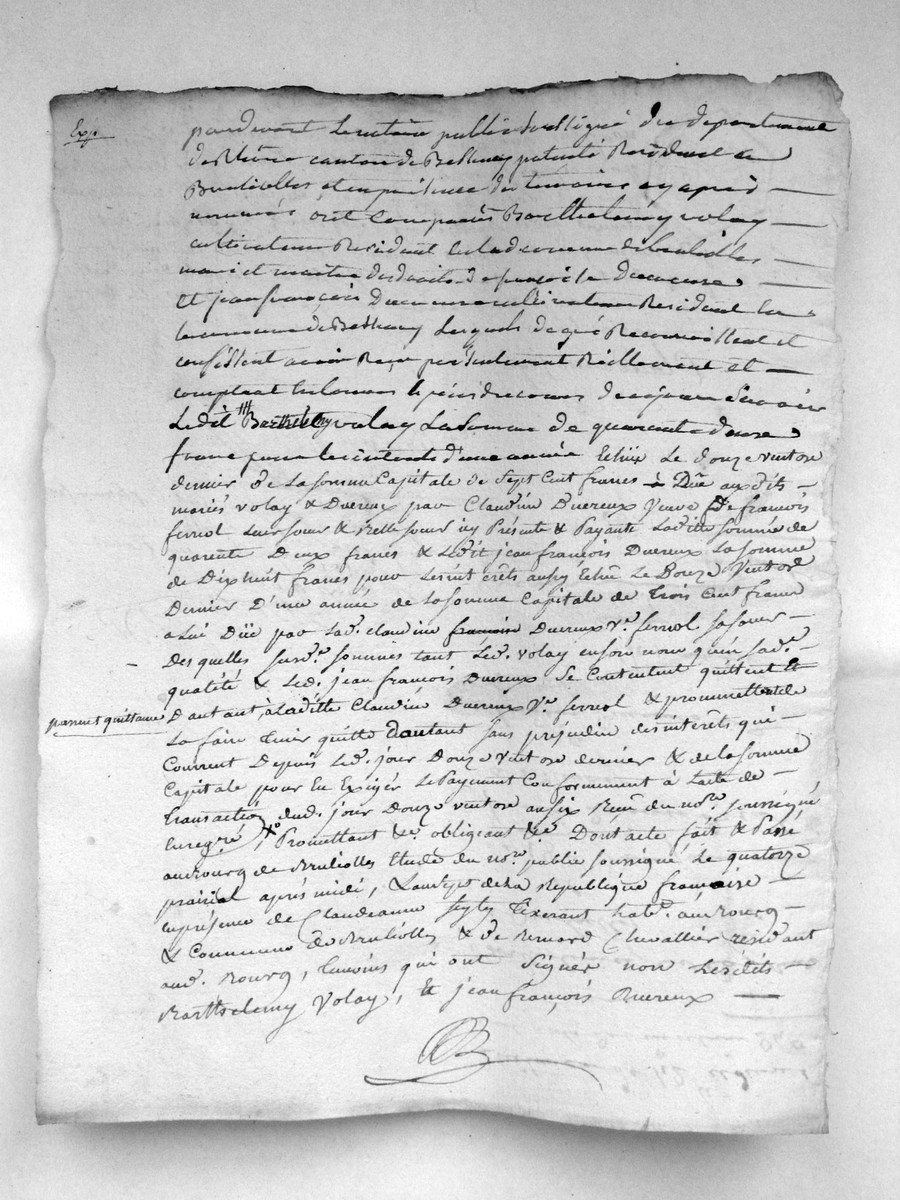 Exp.
pardevant Le notaire public soussigné du departement
du Rhône canton de Bessenay patenté Résident a
Brulliolles et en présence des temoins cy après
nommés ont Comparus Barthelemy volay
cultivateur Résident en la commune de brulliolles
mari et maitre des droits de françoise Duereux
Et jean françois Duereux cultivateur Résident en
la commune de Bessenay Lesquels de gré Reconnoissent et
confessent avoir Reçu présentement Réellement et
comptant en bonnes Espéces de cours de ce jour Savoir
Ledit Barthelemy volay La Somme de quarante deux
francs pour les interets d'une année Echüe Le douze ventose
dernier de La somme Capitale de Sept Cent francs Düe auxdits
mariés volay & Duereux par Claudine Duereux Veuve de françois
ferriol Leur soeur & Belle soeur icy Présente & Payante Laditte somme de
quarente Deux francs & Ledit jean françois Duereux La somme
de Dix huit francs pour Les intérêts aussy Echüs Le Douze Ventose
Dernier D'une année de La somme Capitale de Trois Cent francs
a Lui Düe par Lad.e claudine françoise Duereux V.e ferriol sa soeur
Des quelles susd.es sommes tant Led. volay en son nom qu'en sad.e
qualité & Led. jean françois Duereux Se Contentent quittent Et
passent quittance
D'autant à Laditte Claudine Duereux V.e ferriol & promettent de
La faire Tenir quitte d'autant sans préjudice des interêts qui
Courrent Depuis Led. jour Douze Ventose dernier & de La somme
Capitale pour En Exiger Le Payement Conformement à L'acte de
Transaction dud. jour Douze ventose an six Reçu du no.re soussigné
Enregré, Promettant &c. obligeant &c. Dont acte fait & Passé
au Bourg de Brulliolles Etude du no.re public soussigné Le quatorze
prairial après midi, L'an sept de La Republique française
En présence de Claude Tixerant hab.t au Bourg
& Commune de Brulliolles & de Benoid Chevallier résidant
aud. Bourg, Temoins qui ont Signés non Lesdits
Barthelemy Volay, Et jean françois Duereux